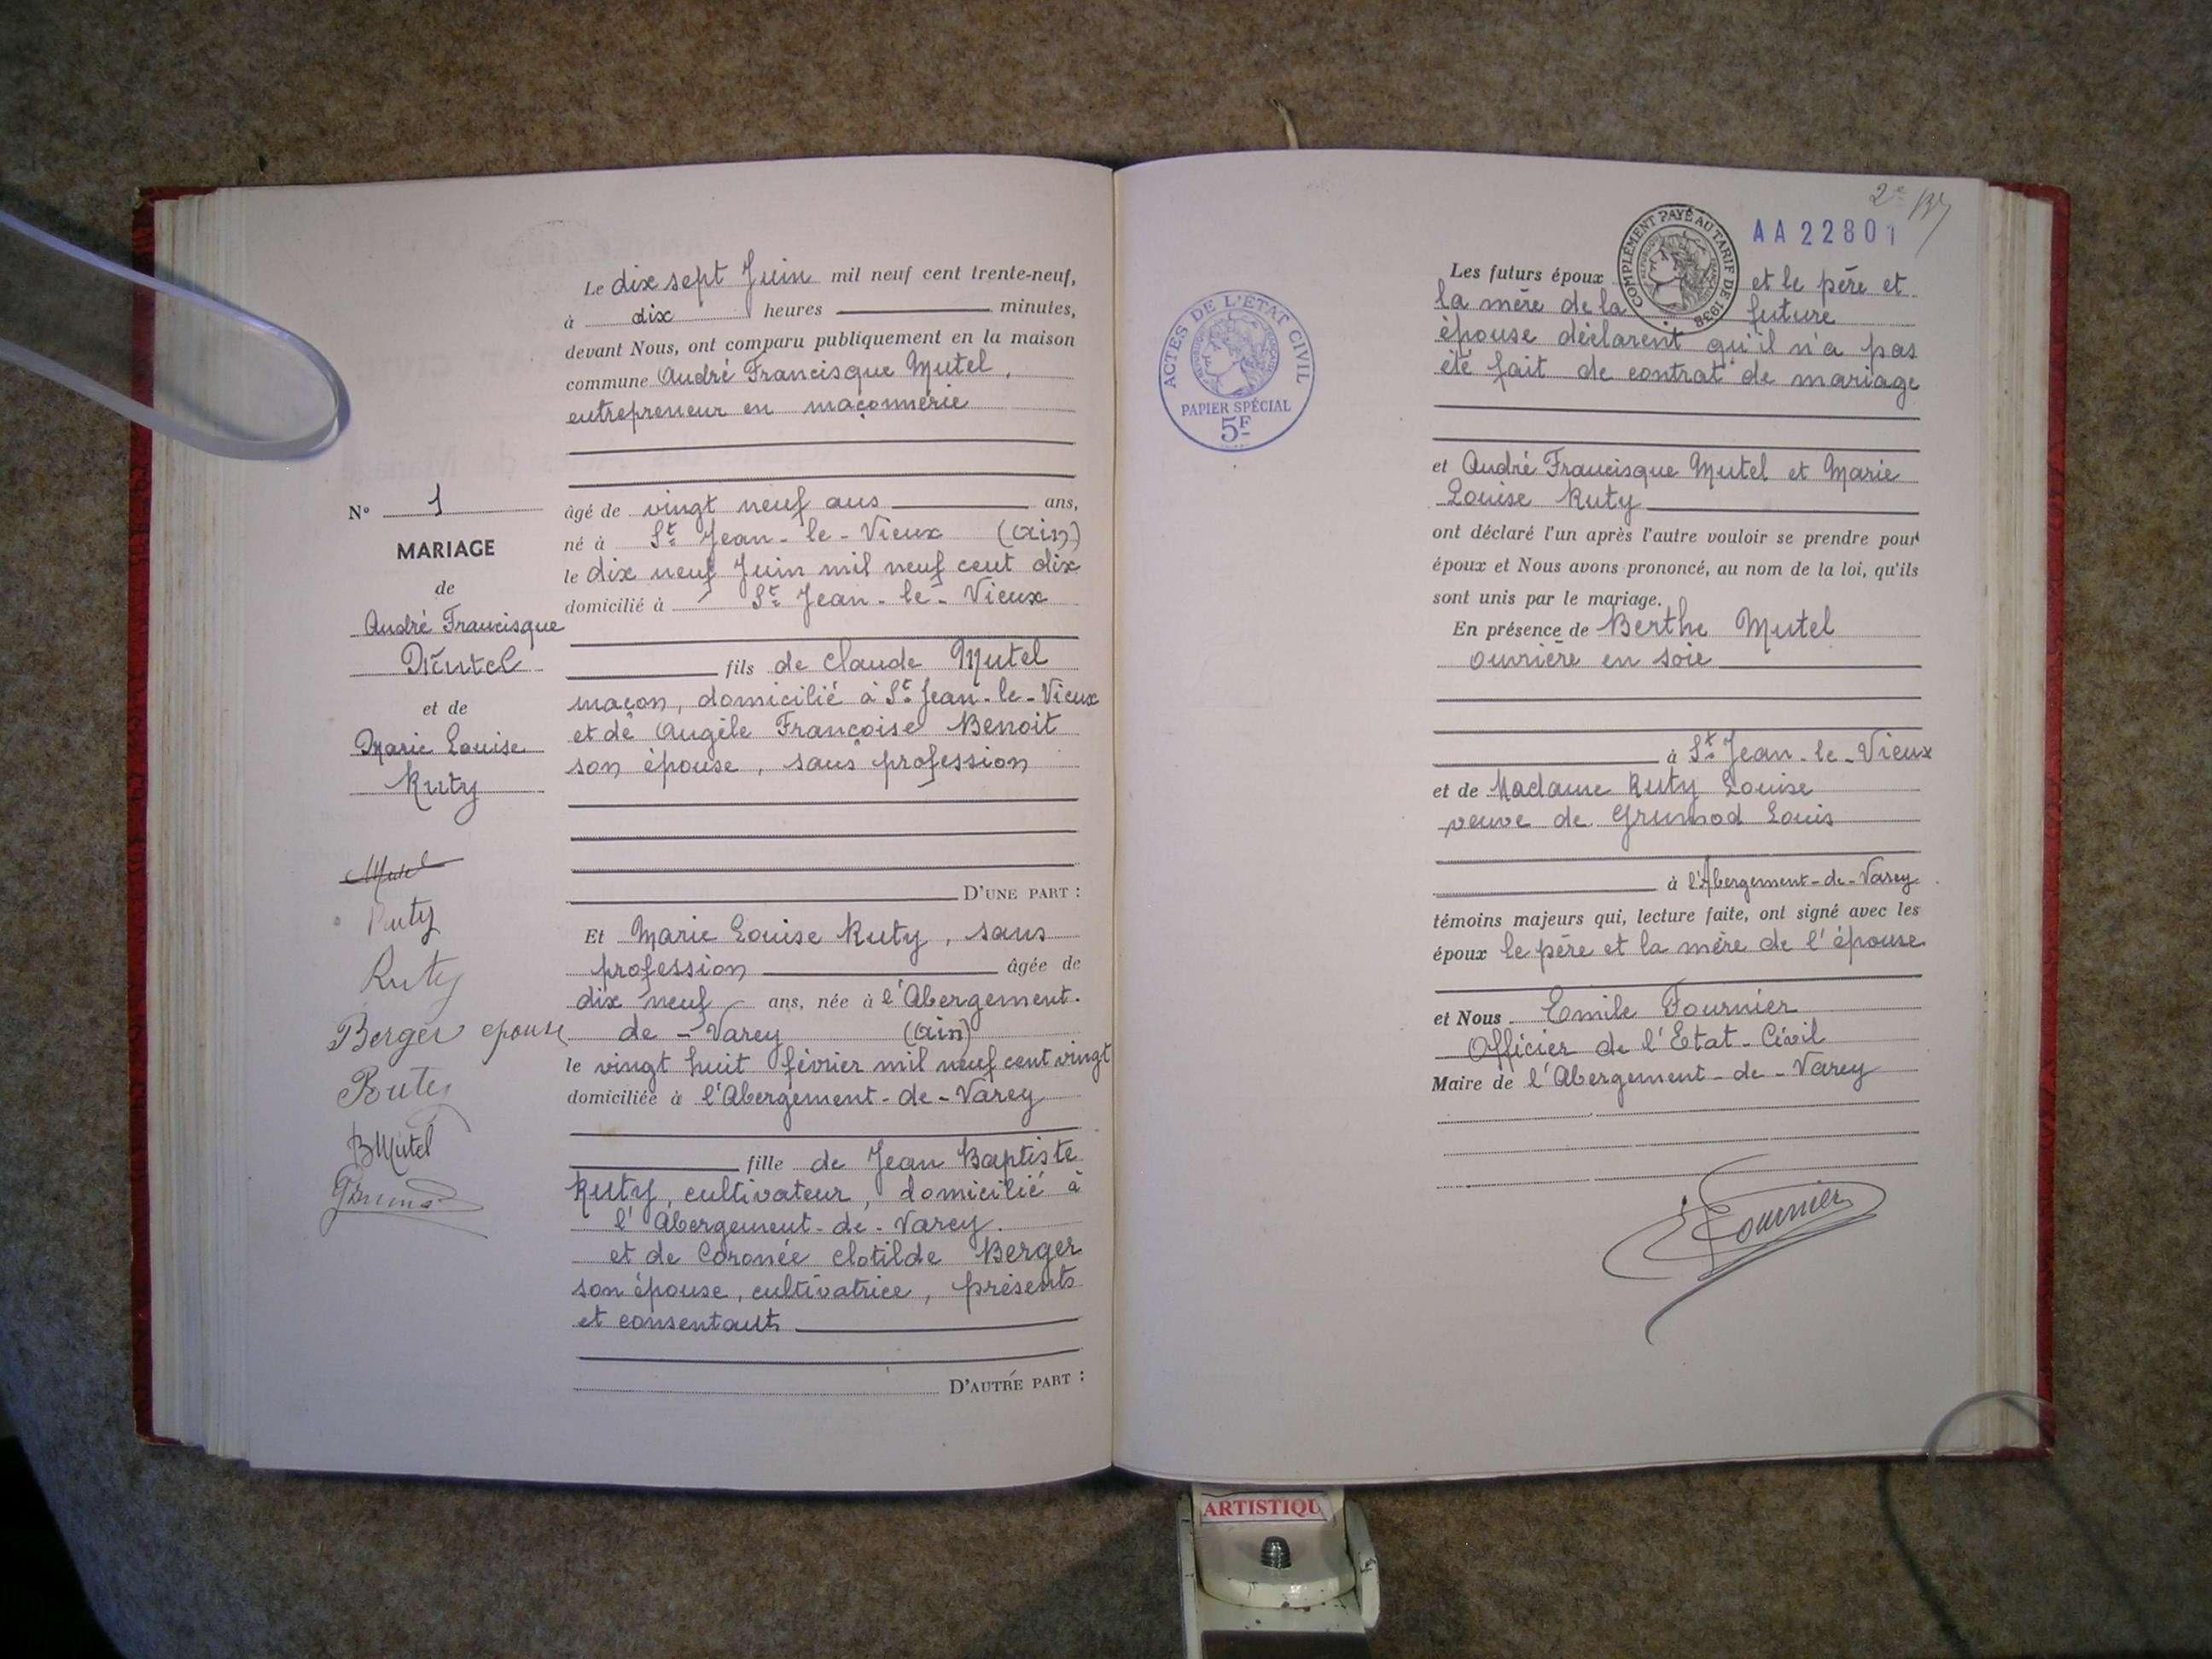 Le dix sept Juin mil neuf cent trente-neuf,
à dix heures minutes,
devant Nous, ont comparu publiquement en la maison
commune André Francisque Mutel,
entrepreneur en maçonnerie
âgé de vingt neuf ans ans,
né à St Jean-le-Vieux (Ain)
le dix neuf Juin mil neuf cent dix
domicilié à St Jean-le-Vieux
fils de Claude Mutel
maçon, domicilié à St Jean-le-Vieux
et de Angèle Françoise Benoit
son épouse, sans profession
D'UNE PART :
Et Marie Louise Ruty, sans
profession âgée de
dix neuf ans, née à l'Abergement-
de-Varey (Ain)
le vingt huit février mil neuf cent vingt
domiciliée à l'Abergement-de-Varey
fille de Jean Baptiste
Ruty, cultivateur, domicilié à
l'Abergement-de-Varey.
et de Coronée Clotilde Berger
son épouse, cultivatrice, présents
et consentants
D'AUTRE PART :
N° 1
MARIAGE
de
André Francisque
Mutel
et de
Marie Louise
Ruty
Mutel
Ruty
Ruty
Berger epouse
Ruty
BMutel
2e
AA22801
COMPLÉMENT PAYÉ AU TARIF DE 1938
ACTES DE L'ÉTAT CIVIL
PAPIER SPÉCIAL
5F
Les futurs époux et le père et
la mère de la future
épouse déclarent qu'il n'a pas
été fait de contrat de mariage
et André Francisque Mutel et Marie
Louise Ruty
ont déclaré l'un après l'autre vouloir se prendre pour
époux et Nous avons prononcé, au nom de la loi, qu'ils
sont unis par le mariage.
En présence de Berthe Mutel
ouvrière en soie
à St Jean-le-Vieux
et de Madame Ruty Louise
veuve de Grumod Louis
à l'Abergement-de-Varey
témoins majeurs qui, lecture faite, ont signé avec les
époux le père et la mère de l'épouse
et Nous Emile Fournier
Officier de l'Etat-Civil
Maire de l'Abergement-de-Varey
Fournier
ARTISTIQU